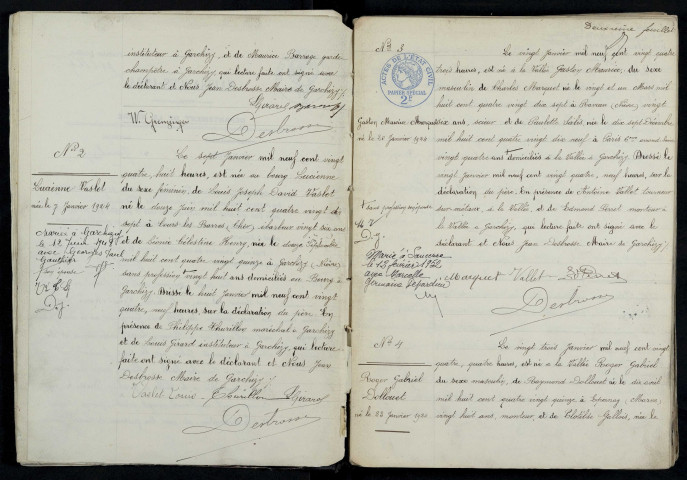 instituteur à Garchizy, et de Maurice Barrage garde
champêtre à Garchizy, qui lecture faite ont signé avec
le déclarant et Nous Jean Desbrosse Maire de Garchizy.
Desbrosse
N° 2
Lucienne Vaslet
née le 7 janvier 1924
Mariée à Garchizy
le 12 Juin 1947
avec Georges
Le sept Janvier mil neuf cent vingt
quatre, huit heures, est née au bourg Lucienne
du sexe féminin, de Louis Joseph David Vaslet
né le douze Juin mil huit cent quatre vingt dix
sept à Cours les Barres, Cher, charbon vingt six ans
et de Léonie Célestine Henry, née le douze
mil huit cent quatre vingt quinze à Garchizy (Nièvre)
sans profession vingt huit ans domiciliés au Bourg à
Garchizy. Dressé le huit Janvier mil neuf cent vingt
quatre, neuf heures, sur la déclaration du père. En
présence de Philippe Thurillon maréchal à Garchizy
et de Louis Girard instituteur à Garchizy, qui lecture
faite ont signé avec le déclarant et Nous Jean
Desbrosse Maire de Garchizy.
Vaslet Louis Thurillon Girard
Desbrosse
Deuxième feuillet
N° 3
ACTES DE L'ÉTAT CIVIL
PAPIER SPÉCIAL
2F
Gaston Maurice Marquet
né le 20 Janvier 1924
Marié à
le 13 février 1952
avec Marcelle
Germaine
Le vingt Janvier mil neuf cent vingt quatre
trois heures, est né à la Vallée Gaston Maurice, du sexe
masculin de Charles Marquet né le vingt et un Mars mil
huit cent quatre vingt dix sept à (Nièvre) vingt
six ans, et de Paulette née le dix sept Décembre
mil huit cent quatre vingt dix neuf à Paris
vingt quatre ans domiciliés à la Vallée à Garchizy. Dressé le
vingt Janvier mil neuf cent vingt quatre, neuf heures, sur la
déclaration du père. En présence de Antoine Vallet tourneur
sur métaux, à la Vallée et de Edmond monteur à
la Vallée à Garchizy, qui lecture faite ont signé avec le
déclarant et Nous Jean Desbrosse Maire de Garchizy.
Marquet Vallet
Desbrosse
N° 4
Roger Gabriel
Dollouet
né le 23 Janvier 1924
Le vingt trois Janvier mil neuf cent vingt
quatre, quatre heures, est né à la Vallée Roger Gabriel
du sexe masculin, de Raymond Dollouet né le dix août
mil huit cent quatre vingt quinze à Epernay (Marne)
vingt huit ans, monteur, et de Clotilde Gallois, née le